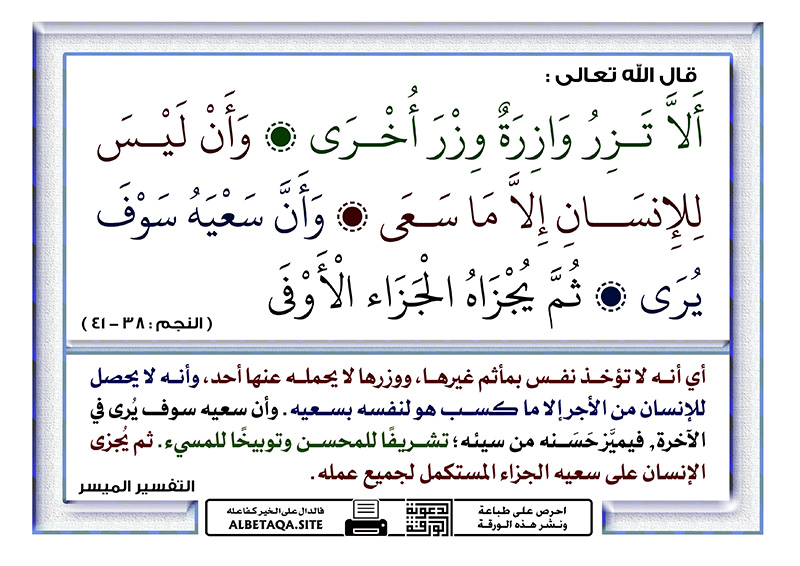 قال الله تعالى :
أَلاَّ تَـزِرُ وَازِرَةٌ وِزْرَ أُخْـرَى ۞ وَأَنْ لَيْـسَ
لِلإِنسَـــانِ إِلاَّ مَا سَـعَى ۞ وَأَنَّ سَعْيَهُ سَوْفَ
يُرَى ۞ ثُمَّ يُجْزَاهُ الْجَزَاء الْأَوْفَى
( النجم : ٣٨ - ٤١ )
أي أنـه لا تؤخـذ نفـس بمأثـم غيرهـا، ووزرها لا يحملـه عنها أحد، وأنـه لا يحصل
للإنسان من الأجر إلا ما كسـب هو لنفسه بسـعيه . وأن سعيه سوف يُرى في
الآخرة, فيميَّز حَسَـنه من سيئه؛ تشـريفًا للمحسـن وتوبيخًا للمسيء. ثم يُجزى
الإنسان على سعيه الجزاء المستكمل لجميع عمله.
التفسير الميسر
احرص على طباعة
ونشر هذه الورقة
الدعوية
الورقة
فالدال على الخير كفاعله
ALBETAQA.SITE